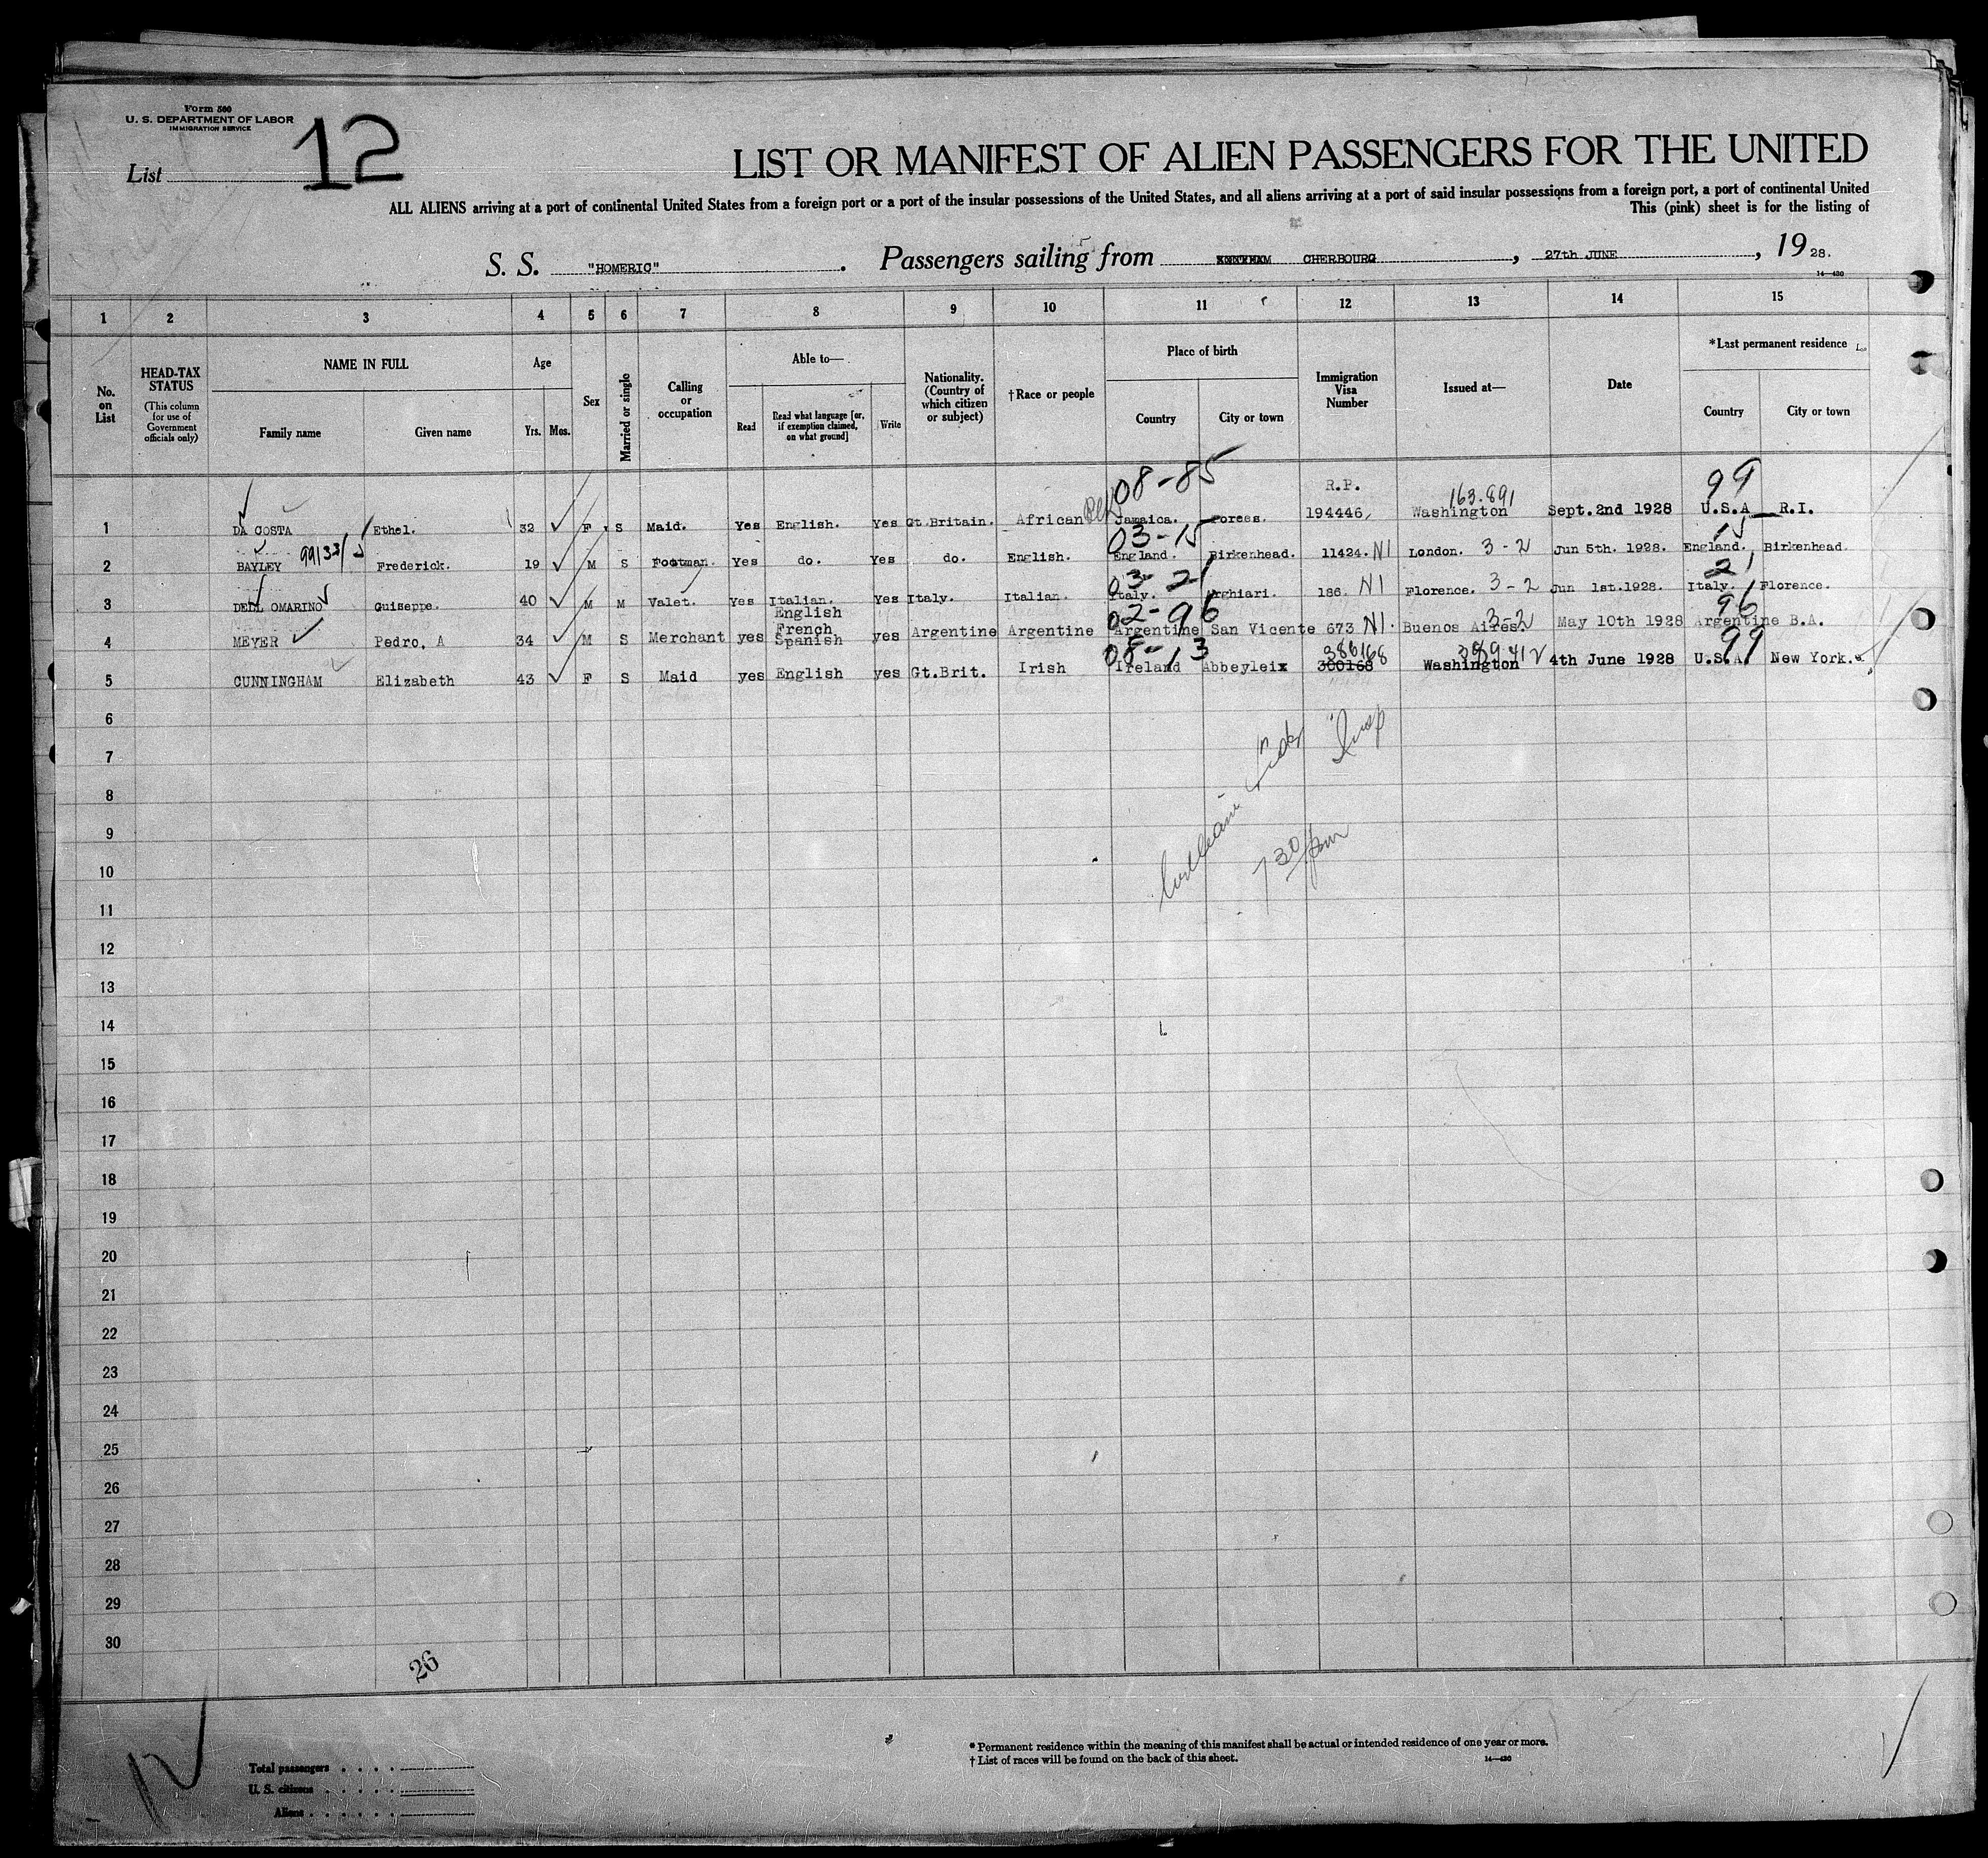 Form 500
U. S. DEPARTMENT OF LABOR
IMMIGRATION SERVICE
List 12
LIST OR MANIFEST OF ALIEN PASSENGERS FOR THE UNITED
ALL ALIENS arriving at a port of continental United States from a foreign port or a port of the insular possessions of the United States, and all aliens arriving at a port of said insular possessions from a foreign port, a port of continental United
This (pink) sheet is for the listing of
S. S. "HOMERIC". Passengers sailing from CHERBOURG, 27th JUNE, 1928.
14—430
1 2 3 4 5 6 7 8 9 10 11 12 13 14 15
No. on List
HEAD-TAX STATUS
(This column for use of Government officials only)
NAME IN FULL
Family name Given name
Age
Yrs. Mos.
Sex
Married or single
Calling or occupation
Able to—
Read
Read what language [or, if exemption claimed, on what ground]
Write
Nationality. (Country of which citizen or subject)
†Race or people
Place of birth
Country City or town
Immigration Visa Number
Issued at—
Date
*Last permanent residence
Country City or town
08-85 R.P. 163.891 99
1 DA COSTA Ethel. 32 F S Maid. Yes English. Yes Gt.Britain. African Jamaica. Pores. 194446, Washington Sept. 2nd 1928 U.S.A R.I.
03-15 15
2 BAYLEY 9913 Frederick. 19 M S Footman. Yes do. Yes do. English. England. Birkenhead. 11424. NI London. 3-2 Jun 5th. 1928. England. Birkenhead.
03-21 21
3 DELL OMARINO Guiseppe. 40 M M Valet. Yes Italian. Yes Italy. Italian. Italy. Anghiari. 186. NI Florence. 3-2 Jun 1st.1928. Italy. Florence.
02-96 96
4 MEYER Pedro, A 34 M S Merchant yes English French Spanish yes Argentine Argentine Argentine San Vicente 673 NI. Buenos Aires. 3-2 May 10th 1928 Argentine B.A.
08-13 386168 99
5 CUNNINGHAM Elizabeth 43 F S Maid yes English yes Gt.Brit. Irish Ireland Abbeyleix 300168 Washington 4th June 1928 U.S.A New York.
6
7
8
9
10
11
12
13
14
15
16
17
18
19
20
21
22
23
24
25
26
27
28
29
30
William
Insp
7 30 pm
26
12
Total passengers
U. S. citizens
Aliens
* Permanent residence within the meaning of this manifest shall be actual or intended residence of one year or more.
† List of races will be found on the back of this sheet.
14—430